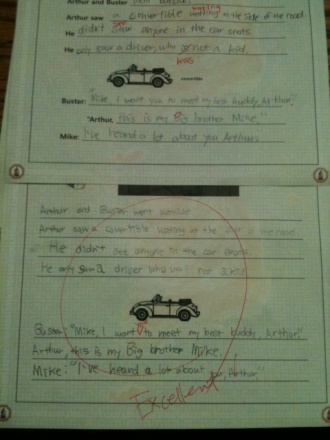 Arthur and Buster went outside.
Arthur saw a convertible waiting at the side of the road.
He didn't see anyone in the car seats.
He only saw a driver who was not a kid.
was
convertible
Buster: "Mike, I want you to meet my best buddy, Arthur."
"Arthur, this is my Big brother Mike."
Mike: I've heard a lot about you Arthur."
Arthur and Buster went outside
Arthur saw a convertible waiting at the side of the road.
He didn't see anyone in the car
He only saw a driver who was not a kid
Buster: "Mike, I want to meet my best buddy, Arthur."
Arthur, this is my Big brother Mike.
Mike: "I've heard a lot about you, Arthur."
Excellent